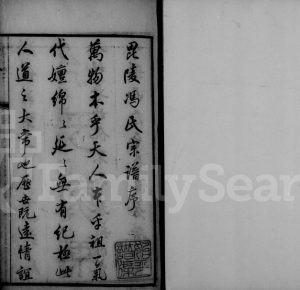 毘陵馮氏宗譜序
萬物本乎天人本乎祖一氣
代嬗綿綿延延無有紀極此
人道之大常也歷世既遠情誼
FamilySear